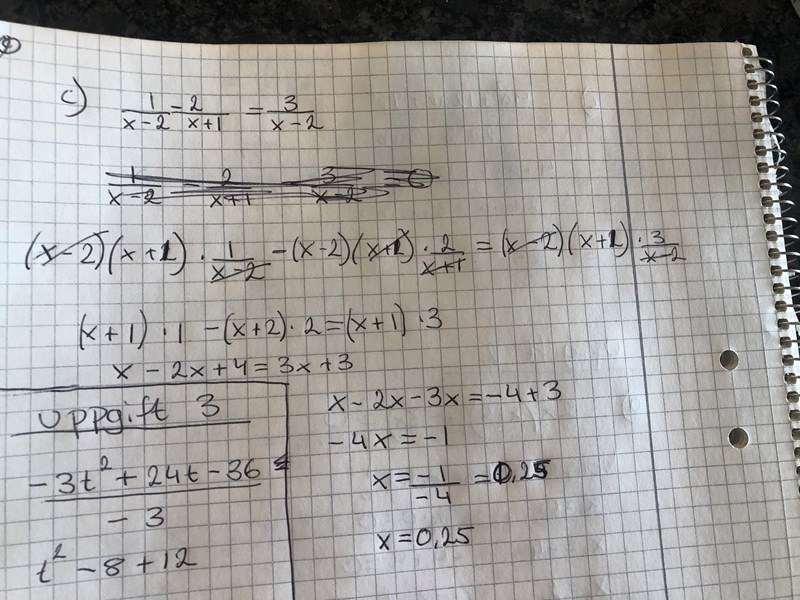 c) 1/(x-2) - 2/(x+1) = 3/(x-2)
1/(x-2) - 2/(x+1) - 3/(x-2) = 0
(x-2)(x+1) · 1/(x-2) - (x-2)(x+1) · 2/(x+1) = (x-2)(x+1) · 3/(x-2)
(x+1) · 1 - (x+2) · 2 = (x+1) · 3
x - 2x + 4 = 3x + 3
x - 2x - 3x = -4 + 3
-4x = -1
x = -1/-4 = 0,25
x = 0,25
Uppgift 3
-3t² + 24t - 36
-3
t² - 8 + 12